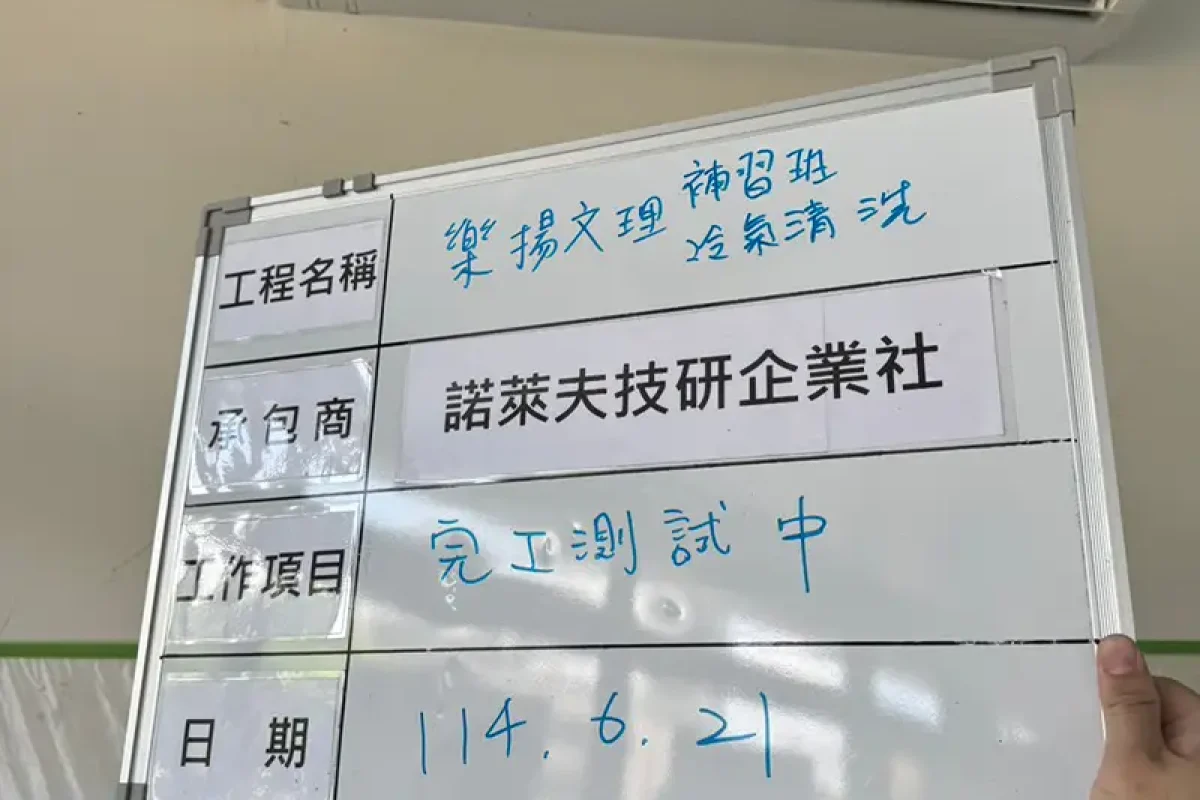 工程名稱 樂揚文理補習班
冷氣清洗
承包商 諾萊夫技研企業社
工作項目 完工測試中
日期 114.6.21